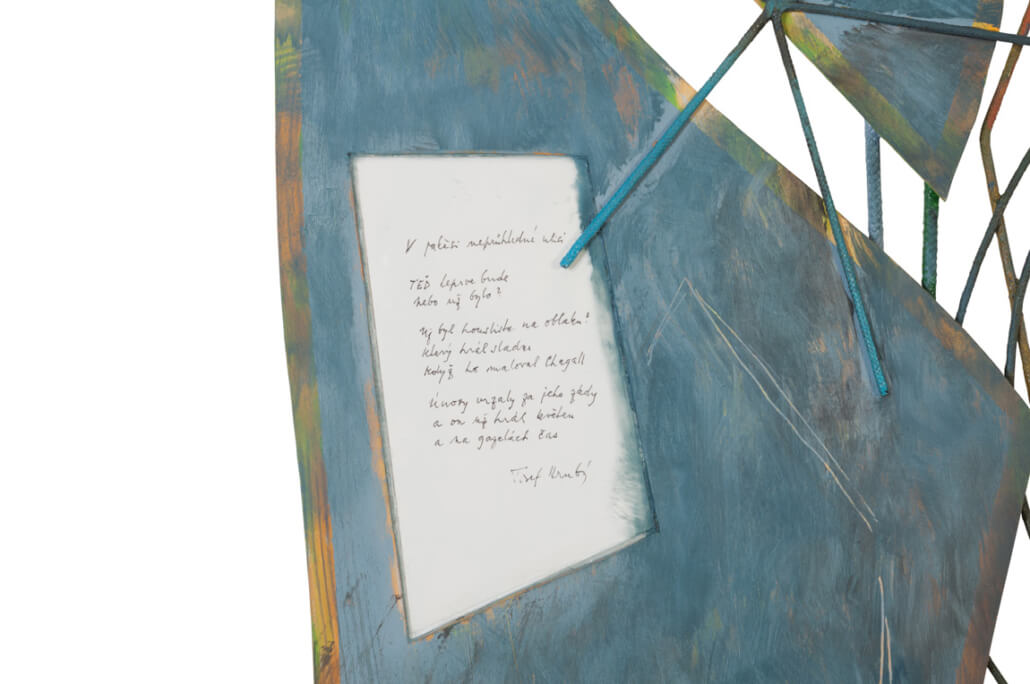 V neprůhledné ulici
TEĎ teprve bude
nebo už bylo?
Už byl houslista na oblaku?
který hrál sladce
když ho maloval Chagall
Únory vrzaly za jeho zády
a on už hrál květen
a na gazelách čas
Josef Hrubý